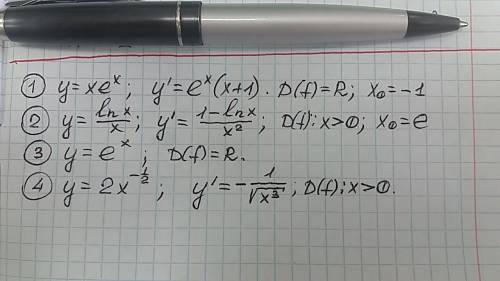 ① y = xeˣ; y' = eˣ(x+1). D(f)=R; x₀=-1
② y = ln x / x; y' = (1-ln x)/x²; D(f): x>0; x₀=e
③ y = eˣ; D(f)=R.
④ y = 2x^(-1/2); y' = -1/√x³; D(f): x>0.